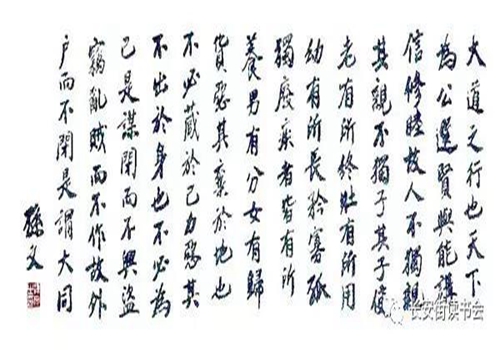 大道之行也天下
為公選賢與能講
信修睦故人不獨親
其親不獨子其子使
老有所終壯有所用
幼有所長矜寡孤
獨廢疾者皆有所
養男有分女有歸
貨惡其棄於地也
不必藏於己力惡其
不出於身也不必為
己是謀閉而不興盜
竊亂賊而不作故外
户而不閉是謂大同
孫文
长安街读书会